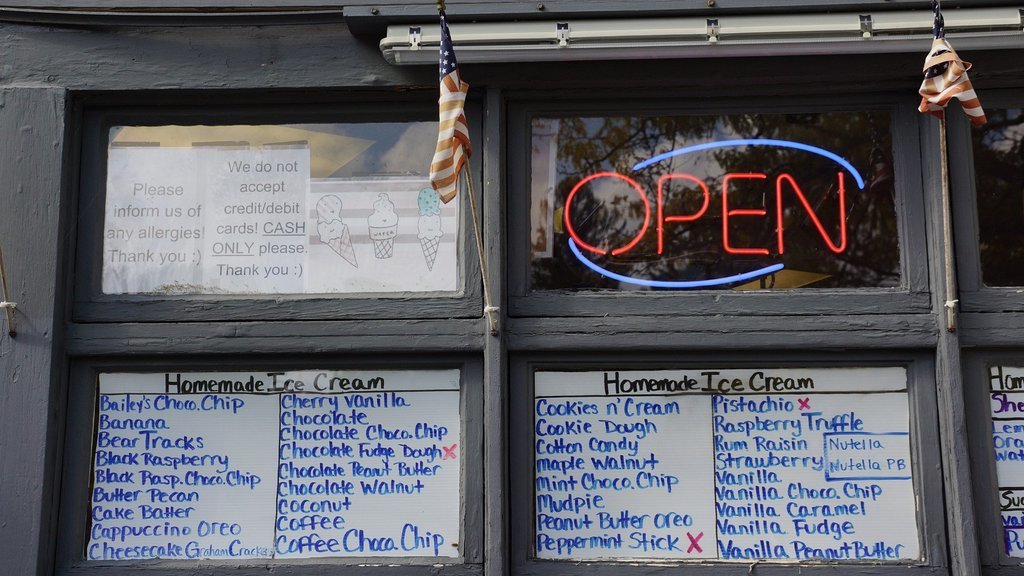 Please
inform us of
any allergies!
Thank you :)
We do not
accept
credit/debit
cards! CASH
ONLY please.
Thank you :)
WAFER
OPEN
Homemade Ice Cream
Bailey's Choco. Chip
Banana
Bear Tracks
Black Raspberry
Black Rasp. Choco. Chip
Butter Pecan
Cake Batter
Cappuccino Oreo
Cheesecake Graham Cracker
Cherry Vanilla
Chocolate
Chocolate Choco. Chip
Chocolate Fudge Dough x
Chocolate Peanut Butter
Chocolate Walnut
Coconut
Coffee
Coffee Choco Chip
Homemade Ice Cream
Cookies n' Cream
Cookie Dough
Cotton Candy
Maple Walnut
Mint Choco. Chip
Mudpie
Peanut Butter Oreo
Peppermint Stick x
Pistachio x
Raspberry Truffle
Rum Raisin
Strawberry
Nutella
Nutella PB
Vanilla
Vanilla Choco. Chip
Vanilla Caramel
Vanilla Fudge
Vanilla Peanut Butter